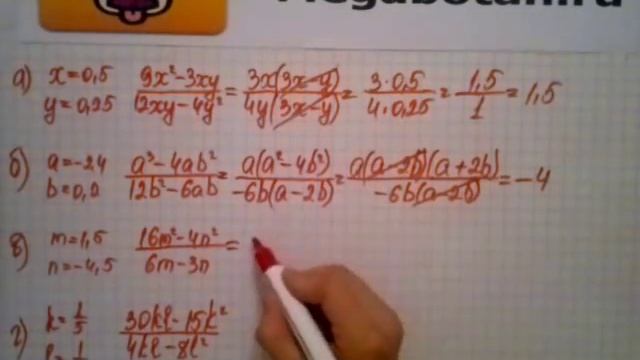 Megabotan.ru
а) x=0,5 y=0,25 (9x²-3xy)/(12xy-4y²) = (3x(3x-y))/(4y(3x-y)) = (3·0,5)/(4·0,25) = 1,5/1 = 1,5
б) a=-24 (a³-4ab²)/(12b²-6ab) = (a(a²-4b²))/(-6b(a-2b)) = (a(a-2b)(a+2b))/(-6b(a-2b)) = -4
в) m=1,5 n=-4,5 (16m²-4n²)/(6m-3n) =
г) k=1/5 (30kl-15k²)/(4kl-8l²)